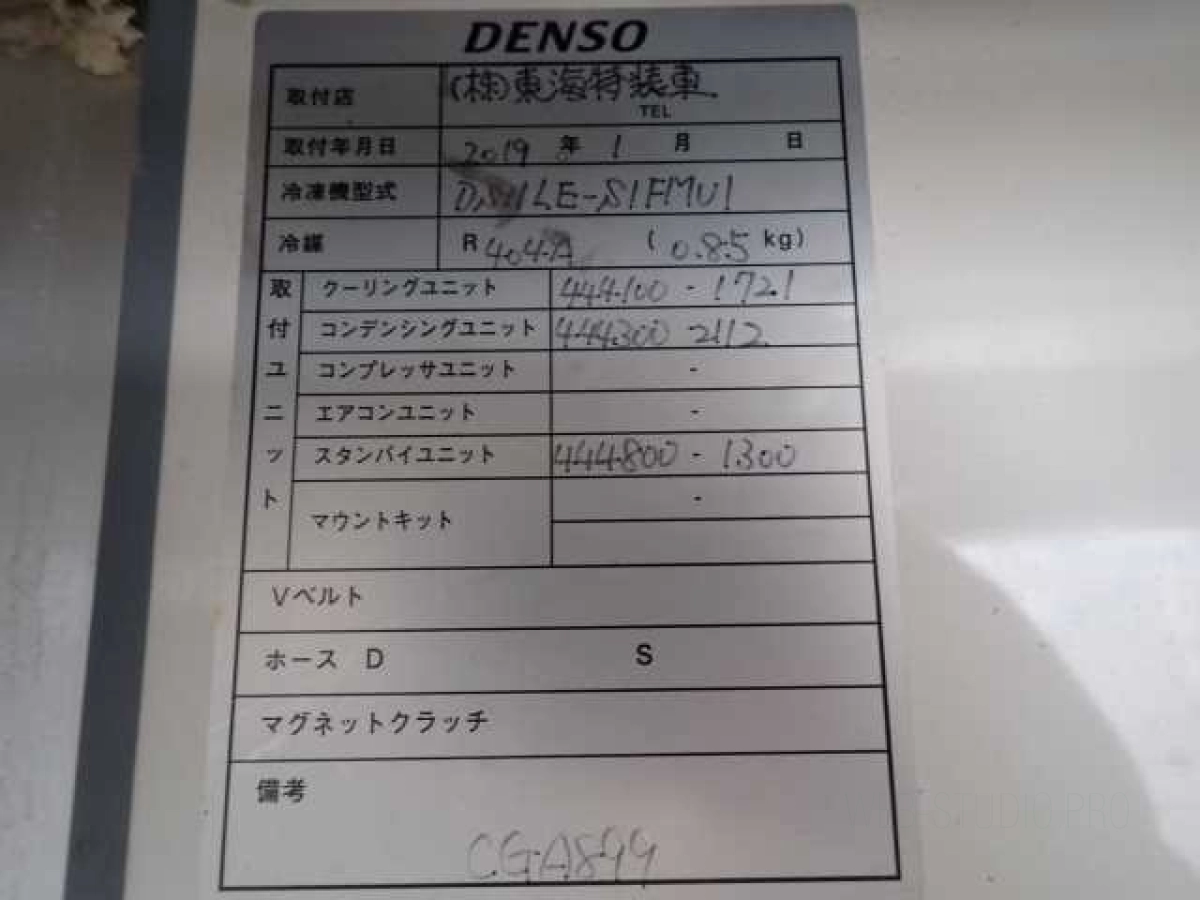 DENSO
取付店 (株)東海特装車
TEL
取付年月日 2019 年 1 月 日
冷凍機型式
冷媒 R 404A ( 0.85 kg)
取付ユニット
クーリングユニット 444100 - 1721
コンデンシングユニット 444300 2112
コンプレッサユニット -
エアコンユニット -
スタンバイユニット 444800 - 1300
マウントキット -
Vベルト
ホース D S
マグネットクラッチ
備考